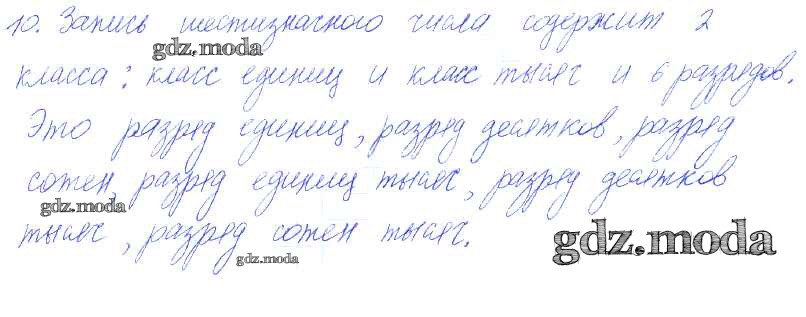 10. Запись шестизначного числа содержит 2
gdz.moda
класса: класс единиц и класс тысяч и 6 разрядов.
Это разряд единиц, разряд десятков, разряд
сотен, разряд единиц тысяч, разряд десятков
gdz.moda
тысяч, разряд сотен тысяч.
gdz.moda
gdz.moda